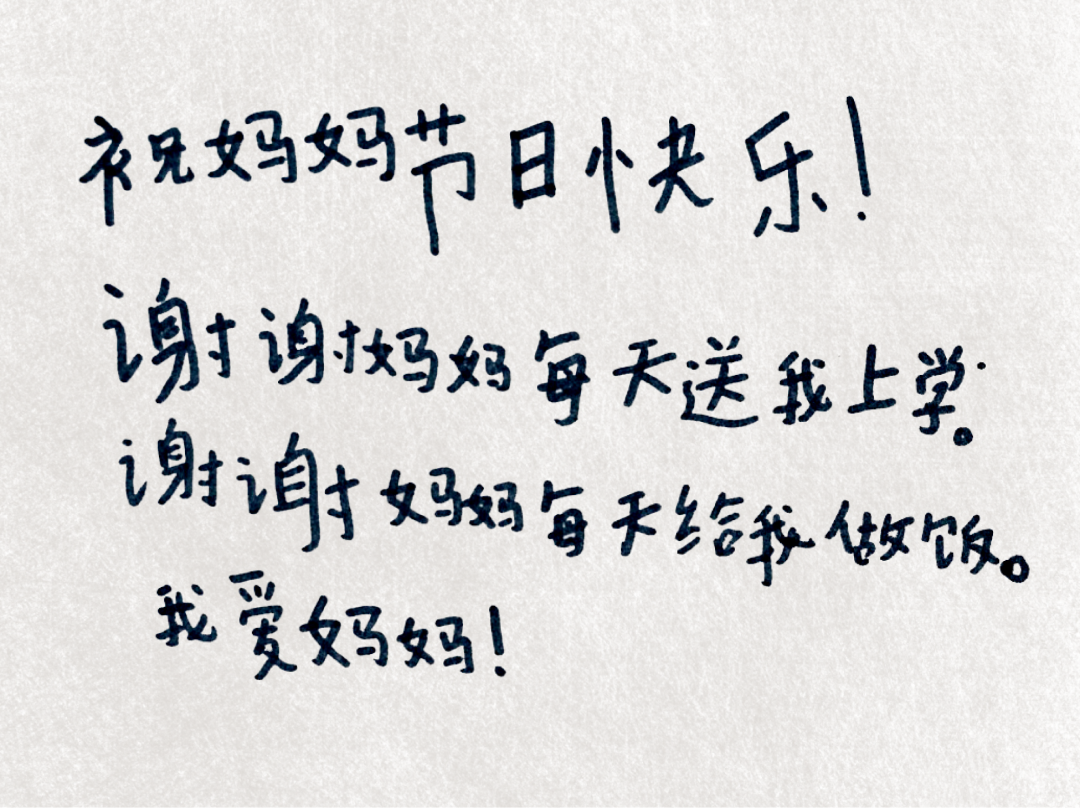 祝妈妈节日快乐！
谢谢妈妈每天送我上学。
谢谢妈妈每天给我做饭。
我爱妈妈！